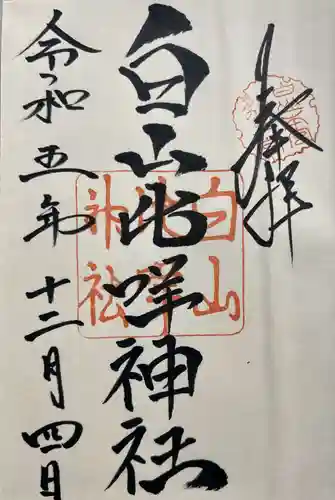 奉拝
白山比咩神社
令和五年十二月四日
白山
比咩
神社